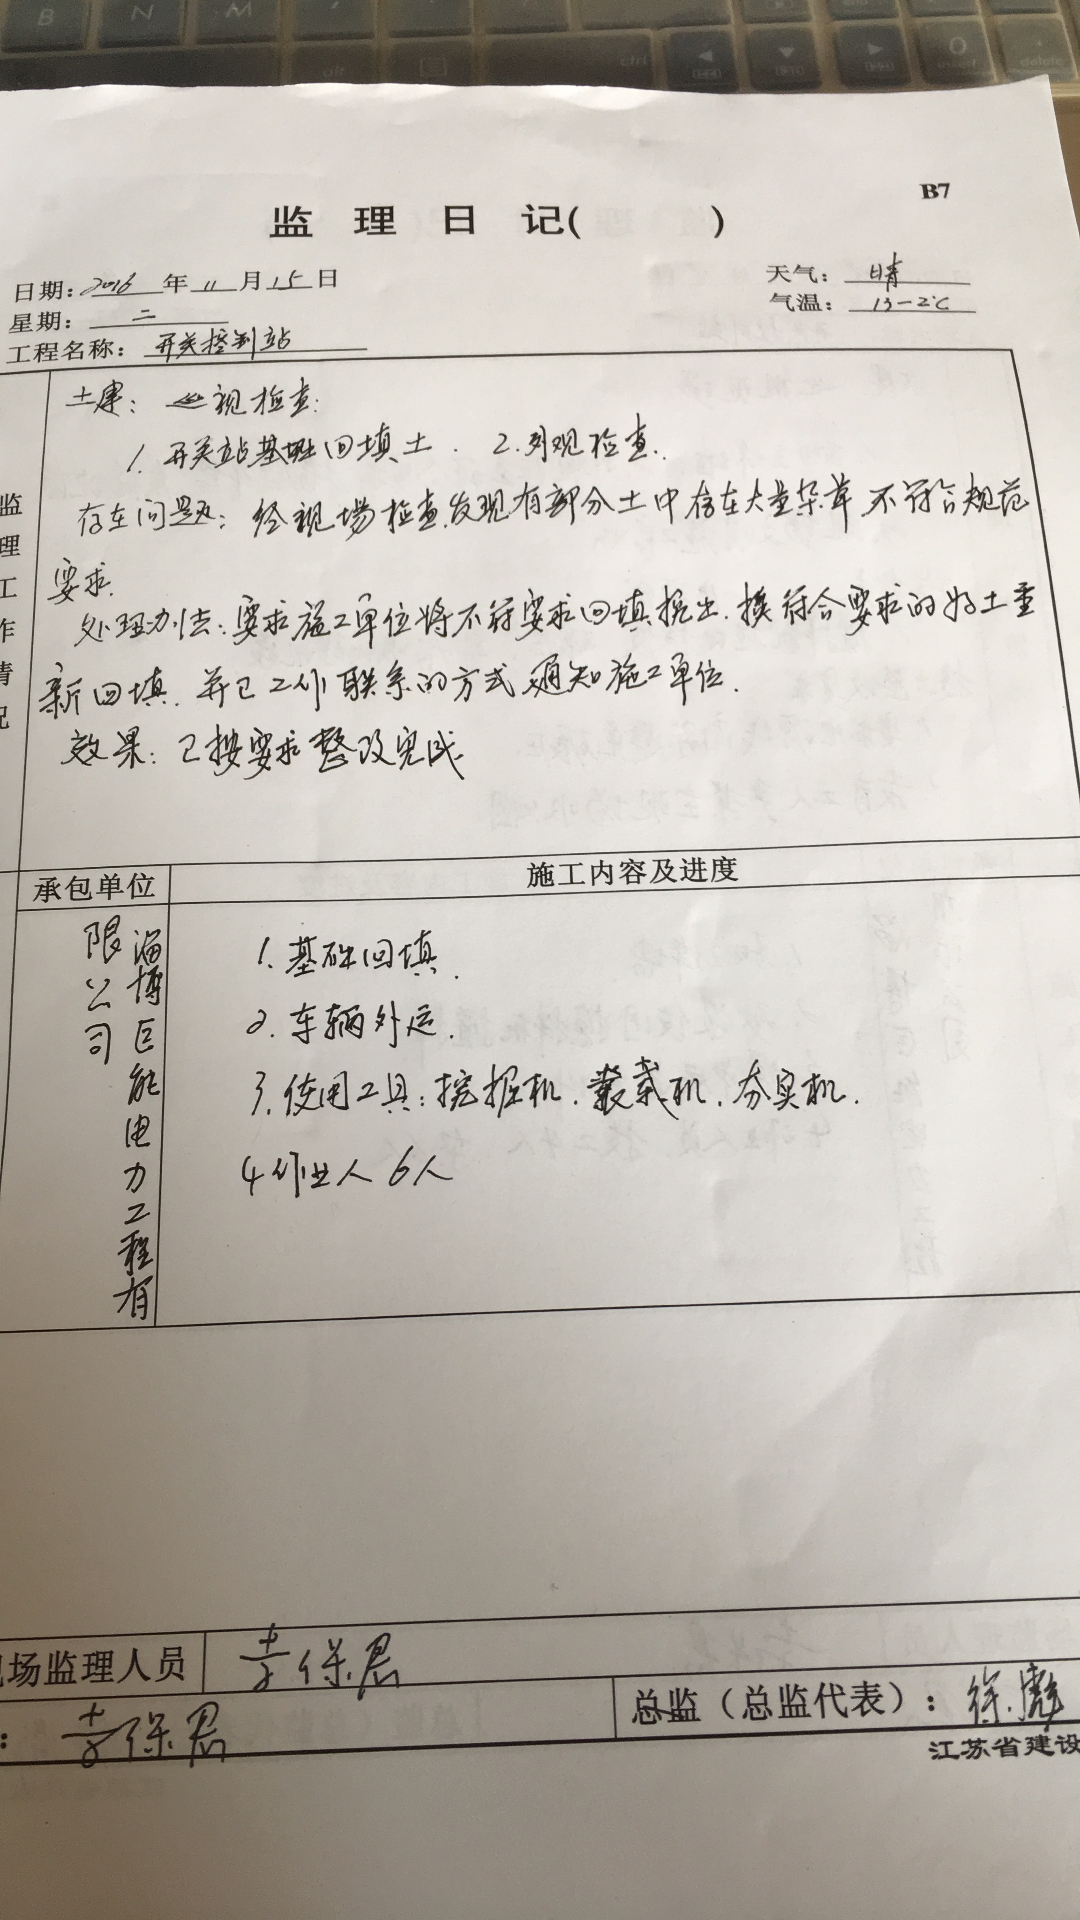 B7
监 理 日 记( )
日期: 2016 年 11 月 15 日
天气: 晴
星期: 二
气温: 13-2℃
工程名称: 开关控制站
监理工作情况
土建: 巡视检查:
1. 开关站基础回填土. 2.外观检查.
存在问题: 经视场检查,发现有部分土中存在大量杂草,不符合规范
要求.
处理办法: 要求施工单位将不符要求回填挖出,换符合要求的好土重
新回填,并已工作联系的方式通知施工单位.
效果: 已按要求整改完成
承包单位 施工内容及进度
淄博巨能电力工程有
限公司
1. 基础回填.
2. 车辆外运.
3. 使用工具: 挖掘机. 装载机. 夯实机.
4 作业人 6人
场监理人员 李保君
: 李保君
总监(总监代表): 徐彪
江苏省建设